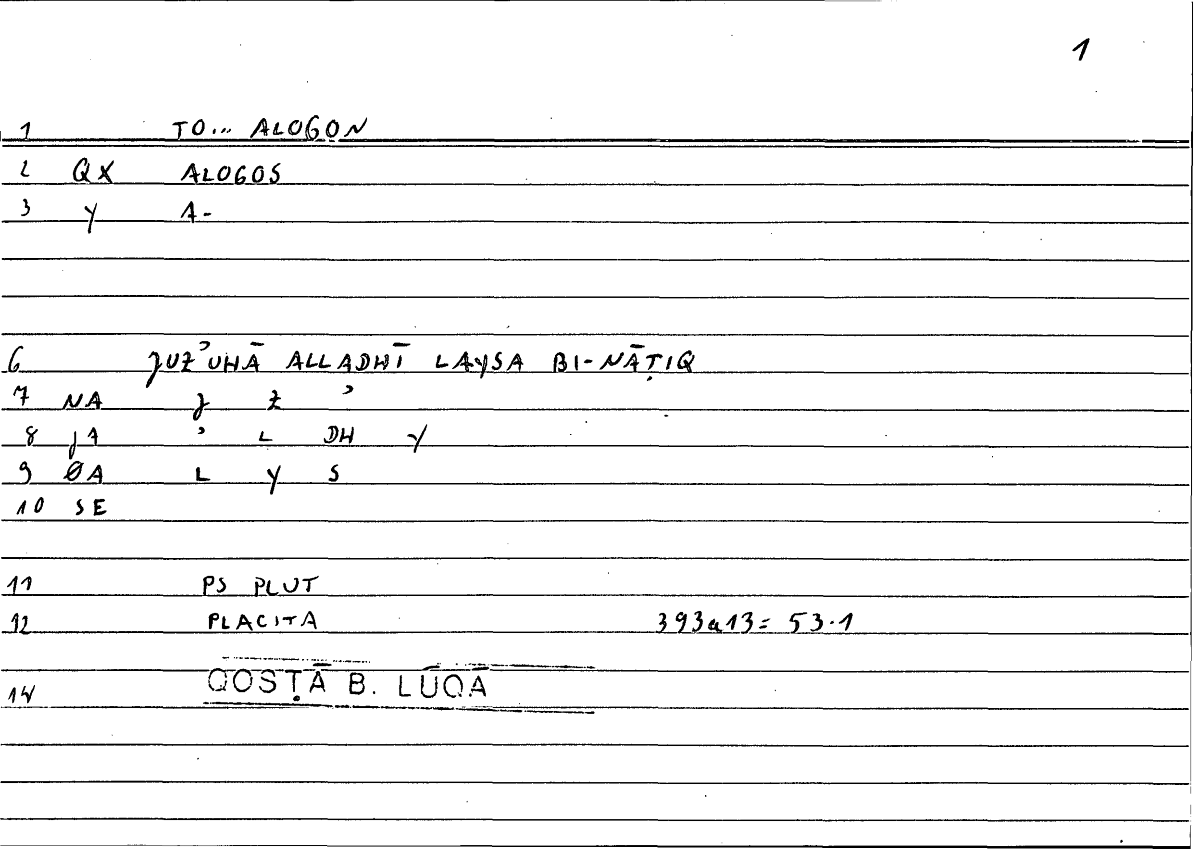 1
1 TO... ALOGON
2 QX ALOGOS
3 Y A-
6 ǦUZʾUHĀ ALLADHĪ LAYSA BI-NĀṬIQ
7 NA Ǧ Z ʾ
8 JA ʾ L DH Y
9 ØA L Y S
10 SE
11 PS PLUT
12 PLACITA 393a13= 53.1
14 QOSṬĀ B. LŪQĀ